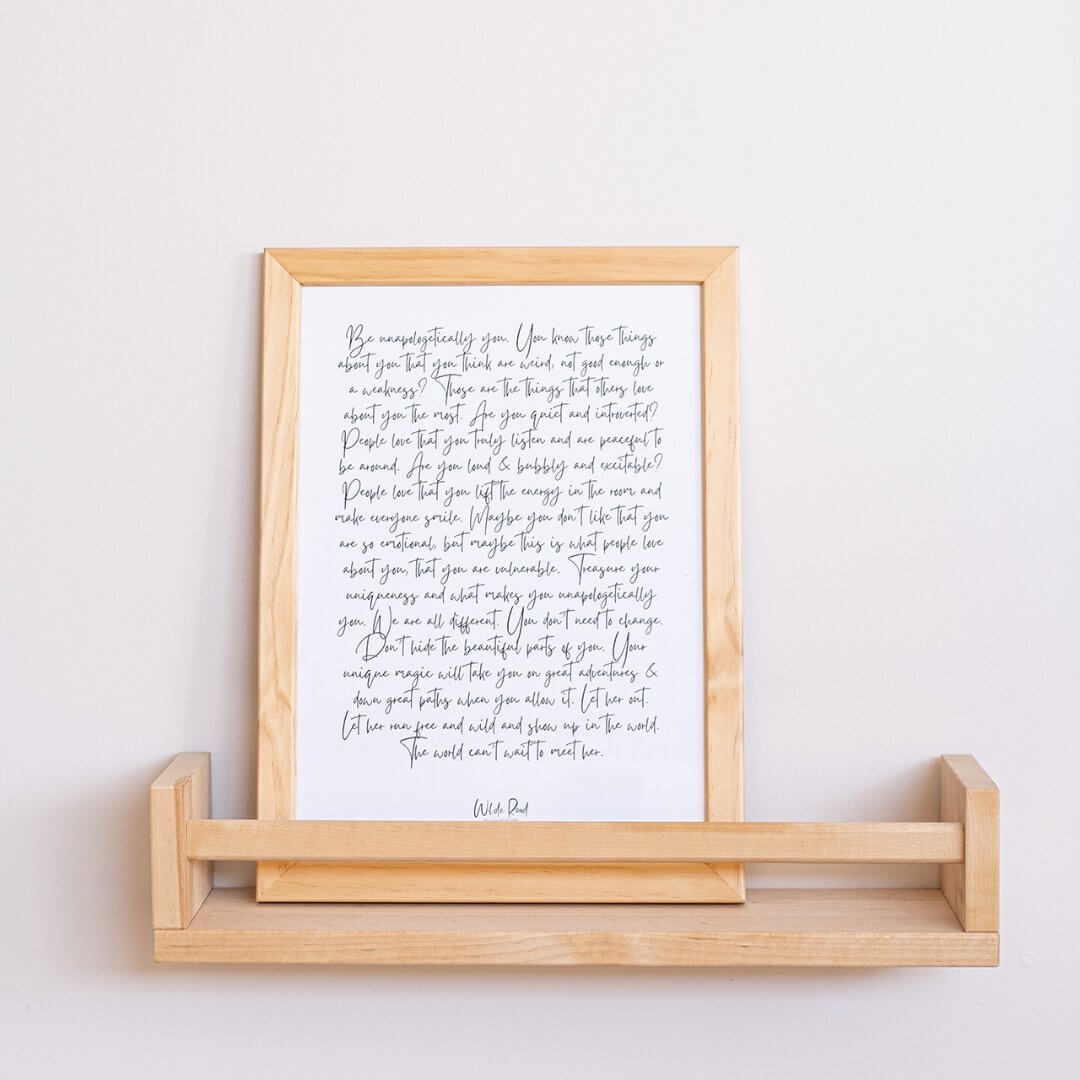 Be unapologetically you. You know those things
about you that you think are weird, not good enough or
a weakness? Those are the things that others love
about you the most. Are you quiet and introverted?
People love that you truly listen and are peaceful to
be around. Are you loud & bubbly and excitable?
People love that you lift the energy in the room and
make everyone smile. Maybe you don't like that you
are so emotional, but maybe this is what people love
about you, that you are vulnerable. Treasure your
uniqueness and what makes you unapologetically
you. We are all different. You don't need to change.
Don't hide the beautiful parts of you. Your
unique magic will take you on great adventures &
down great paths when you allow it. Let her out.
Let her run free and wild and show up in the world.
The world can't wait to meet her.
Wilde Road